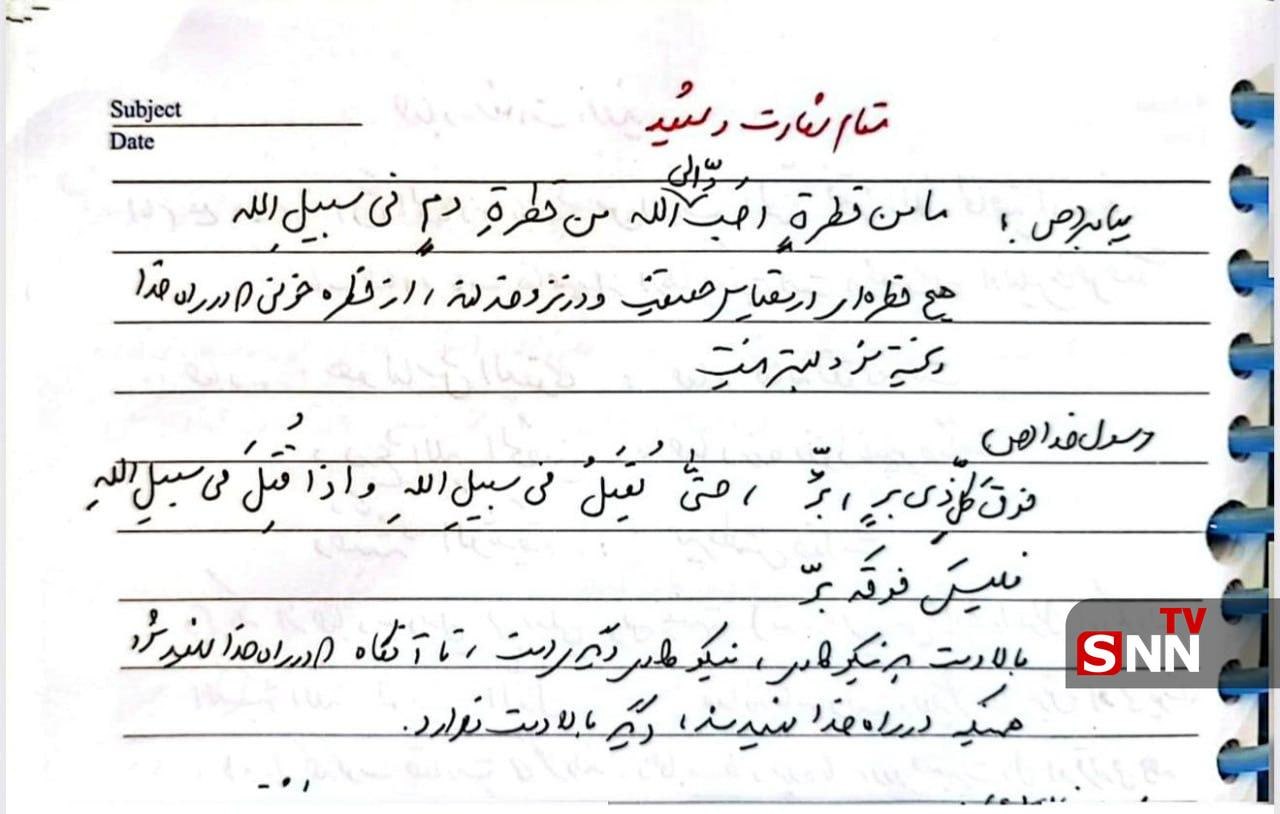 Subject
Date
مقام شهادت و شهید
پیامبر(ص): ما من قطرةٍ أحَبَّ إلی الله من قطرةِ دمٍ فی سبیلِ اللهِ
هیچ قطره‌ای در مقیاس حقیقت و در نزد خدا، از قطره خونی که در راه خدا
ریخته شود بهتر نیست
رسول خدا(ص)
فوقَ کلِّ ذی برٍ، برٌّ، حتّی یُقتَلُ فی سبیلِ اللهِ و اذا قُتِلَ فی سبیلِ اللهِ
فلیسَ فوقَه برٌّ
بالادست هر نیکوکاری، نیکوکار دیگری است، تا آنگاه که در راه خدا شهید شود
همینکه در راه خدا شهید شد، دیگر بالادست ندارد.
SNN TV